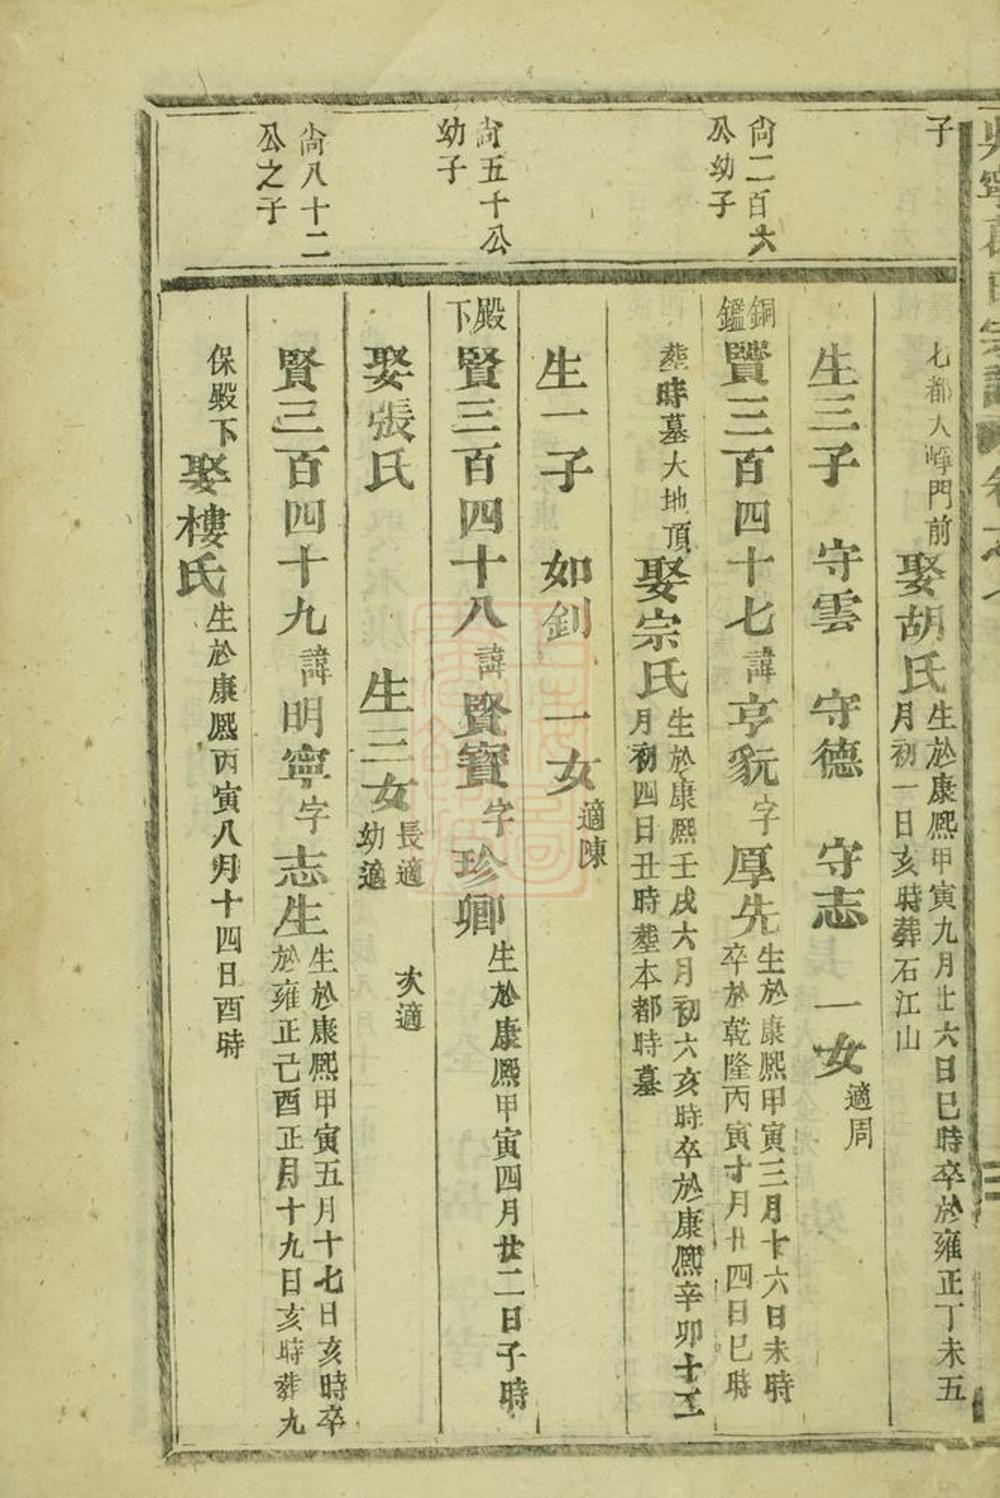 子
尙二百六
公幼子
尙五十公
幼子
尙八十二
公之子
七都大嶂門前娶胡氏生於康熙甲寅九月廿六日巳時卒於雍正丁未五
月初一日亥時葬石江山
生三子 守雲 守德 守志 一女適周
銅鑑賢三百四十七諱亨貌字厚先生於康熙甲寅三月十六日未時
卒於乾隆丙寅十月廿四日巳時
葬時墓大地頂娶宗氏生於康熙壬戌六月初六亥時卒於康熙辛卯十二
月初四日丑時塟本都時墓
生一子 如釗 一女適陳
殿下賢三百四十八諱賢寶字珍卿生於康熙甲寅四月廿二日子時
娶張氏 生三女長適 次適
幼適
賢三百四十九諱明寧字志生生於康熙甲寅五月十七日亥時卒
於雍正己酉正月十九日亥時葬九
保殿下娶樓氏生於康熙丙寅八月十四日酉時